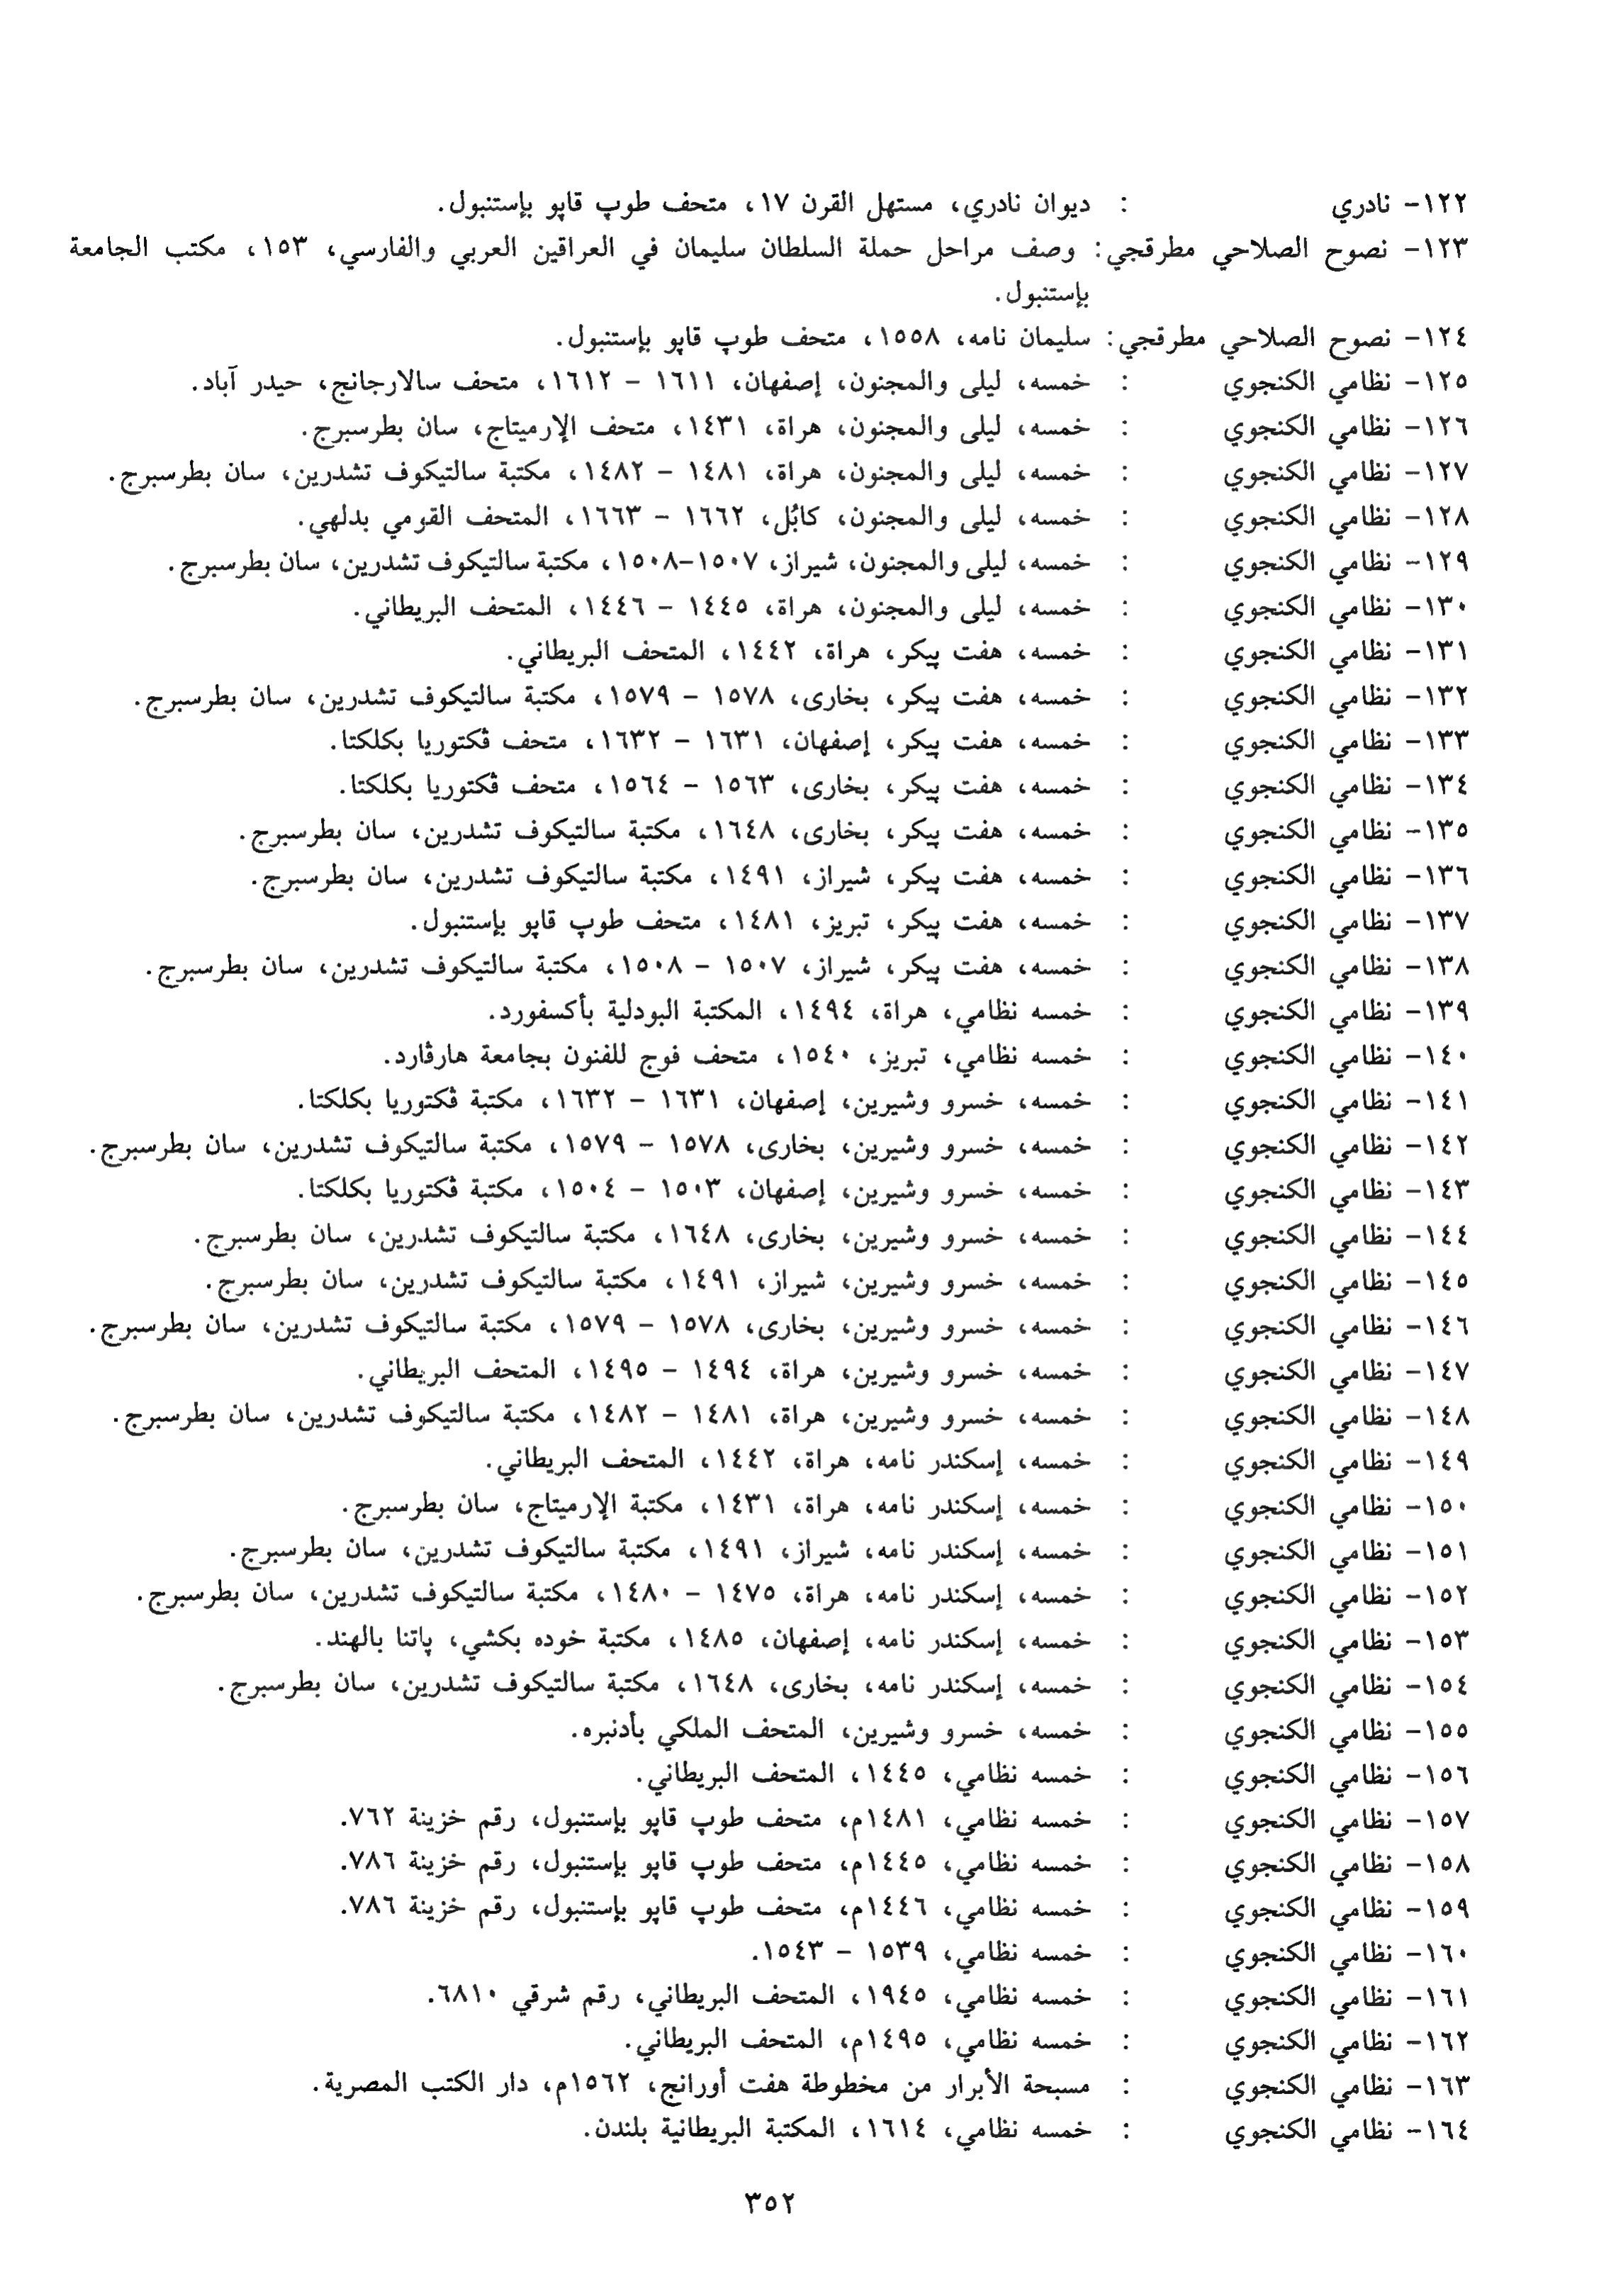 ١٢٢- نادري : ديوان نادري، مستهل القرن ١٧، متحف طوپ قاپو بإستنبول.
١٢٣- نصوح الصلاحي مطرقجي: وصف مراحل حملة السلطان سليمان في العراقين العربي والفارسي، ١٥٣، مكتب الجامعة
بإستنبول.
١٢٤- نصوح الصلاحي مطرقجي: سليمان نامه، ١٥٥٨، متحف طوپ قاپو بإستنبول.
١٢٥- نظامي الكنجوي : خمسه، ليلى والمجنون، إصفهان، ١٦١١ - ١٦١٢، متحف سالارجانج، حيدر آباد.
١٢٦- نظامي الكنجوي : خمسه، ليلى والمجنون، هراة، ١٤٣١، متحف الإرميتاج، سان بطرسبرج.
١٢٧- نظامي الكنجوي : خمسه، ليلى والمجنون، هراة، ١٤٨١ - ١٤٨٢، مكتبة سالتيكوف تشدرين، سان بطرسبرج.
١٢٨- نظامي الكنجوي : خمسه، ليلى والمجنون، كابُل، ١٦٦٢ - ١٦٦٣، المتحف القومي بدلهي.
١٢٩- نظامي الكنجوي : خمسه، ليلى والمجنون، شيراز، ١٥٠٧-١٥٠٨، مكتبة سالتيكوف تشدرين، سان بطرسبرج.
١٣٠- نظامي الكنجوي : خمسه، ليلى والمجنون، هراة، ١٤٤٥ - ١٤٤٦، المتحف البريطاني.
١٣١- نظامي الكنجوي : خمسه، هفت پيكر، هراة، ١٤٤٢، المتحف البريطاني.
١٣٢- نظامي الكنجوي : خمسه، هفت پيكر، بخارى، ١٥٧٨ - ١٥٧٩، مكتبة سالتيكوف تشدرين، سان بطرسبرج.
١٣٣- نظامي الكنجوي : خمسه، هفت پيكر، إصفهان، ١٦٣١ - ١٦٣٢، متحف ڤكتوريا بكلكتا.
١٣٤- نظامي الكنجوي : خمسه، هفت پيكر، بخارى، ١٥٦٣ - ١٥٦٤، متحف ڤكتوريا بكلكتا.
١٣٥- نظامي الكنجوي : خمسه، هفت پيكر، بخارى، ١٦٤٨، مكتبة سالتيكوف تشدرين، سان بطرسبرج.
١٣٦- نظامي الكنجوي : خمسه، هفت پيكر، شيراز، ١٤٩١، مكتبة سالتيكوف تشدرين، سان بطرسبرج.
١٣٧- نظامي الكنجوي : خمسه، هفت پيكر، تبريز، ١٤٨١، متحف طوپ قاپو بإستنبول.
١٣٨- نظامي الكنجوي : خمسه، هفت پيكر، شيراز، ١٥٠٧ - ١٥٠٨، مكتبة سالتيكوف تشدرين، سان بطرسبرج.
١٣٩- نظامي الكنجوي : خمسه نظامي، هراة، ١٤٩٤، المكتبة البودلية بأكسفورد.
١٤٠- نظامي الكنجوي : خمسه نظامي، تبريز، ١٥٤٠، متحف فوج للفنون بجامعة هارڤارد.
١٤١- نظامي الكنجوي : خمسه، خسرو وشيرين، إصفهان، ١٦٣١ - ١٦٣٢، مكتبة ڤكتوريا بكلكتا.
١٤٢- نظامي الكنجوي : خمسه، خسرو وشيرين، بخارى، ١٥٧٨ - ١٥٧٩، مكتبة سالتيكوف تشدرين، سان بطرسبرج.
١٤٣- نظامي الكنجوي : خمسه، خسرو وشيرين، إصفهان، ١٥٠٣ - ١٥٠٤، مكتبة ڤكتوريا بكلكتا.
١٤٤- نظامي الكنجوي : خمسه، خسرو وشيرين، بخارى، ١٦٤٨، مكتبة سالتيكوف تشدرين، سان بطرسبرج.
١٤٥- نظامي الكنجوي : خمسه، خسرو وشيرين، شيراز، ١٤٩١، مكتبة سالتيكوف تشدرين، سان بطرسبرج.
١٤٦- نظامي الكنجوي : خمسه، خسرو وشيرين، بخارى، ١٥٧٨ - ١٥٧٩، مكتبة سالتيكوف تشدرين، سان بطرسبرج.
١٤٧- نظامي الكنجوي : خمسه، خسرو وشيرين، هراة، ١٤٩٤ - ١٤٩٥، المتحف البريطاني.
١٤٨- نظامي الكنجوي : خمسه، خسرو وشيرين، هراة، ١٤٨١ - ١٤٨٢، مكتبة سالتيكوف تشدرين، سان بطرسبرج.
١٤٩- نظامي الكنجوي : خمسه، إسكندر نامه، هراة، ١٤٤٢، المتحف البريطاني.
١٥٠- نظامي الكنجوي : خمسه، إسكندر نامه، هراة، ١٤٣١، مكتبة الإرميتاج، سان بطرسبرج.
١٥١- نظامي الكنجوي : خمسه، إسكندر نامه، شيراز، ١٤٩١، مكتبة سالتيكوف تشدرين، سان بطرسبرج.
١٥٢- نظامي الكنجوي : خمسه، إسكندر نامه، هراة، ١٤٧٥ - ١٤٨٠، مكتبة سالتيكوف تشدرين، سان بطرسبرج.
١٥٣- نظامي الكنجوي : خمسه، إسكندر نامه، إصفهان، ١٤٨٥، مكتبة خوده بكشي، پاتنا بالهند.
١٥٤- نظامي الكنجوي : خمسه، إسكندر نامه، بخارى، ١٦٤٨، مكتبة سالتيكوف تشدرين، سان بطرسبرج.
١٥٥- نظامي الكنجوي : خمسه، خسرو وشيرين، المتحف الملكي بأدنبره.
١٥٦- نظامي الكنجوي : خمسه نظامي، ١٤٤٥، المتحف البريطاني.
١٥٧- نظامي الكنجوي : خمسه نظامي، ١٤٨١م، متحف طوپ قاپو بإستنبول، رقم خزينة ٧٦٢.
١٥٨- نظامي الكنجوي : خمسه نظامي، ١٤٤٥م، متحف طوپ قاپو بإستنبول، رقم خزينة ٧٨٦.
١٥٩- نظامي الكنجوي : خمسه نظامي، ١٤٤٦م، متحف طوپ قاپو بإستنبول، رقم خزينة ٧٨٦.
١٦٠- نظامي الكنجوي : خمسه نظامي، ١٥٣٩ - ١٥٤٣.
١٦١- نظامي الكنجوي : خمسه نظامي، ١٩٤٥، المتحف البريطاني، رقم شرقي ٦٨١٠.
١٦٢- نظامي الكنجوي : خمسه نظامي، ١٤٩٥م، المتحف البريطاني.
١٦٣- نظامي الكنجوي : مسبحة الأبرار من مخطوطة هفت أورانج، ١٥٦٢م، دار الكتب المصرية.
١٦٤- نظامي الكنجوي : خمسه نظامي، ١٦١٤، المكتبة البريطانية بلندن.
٣٥٢